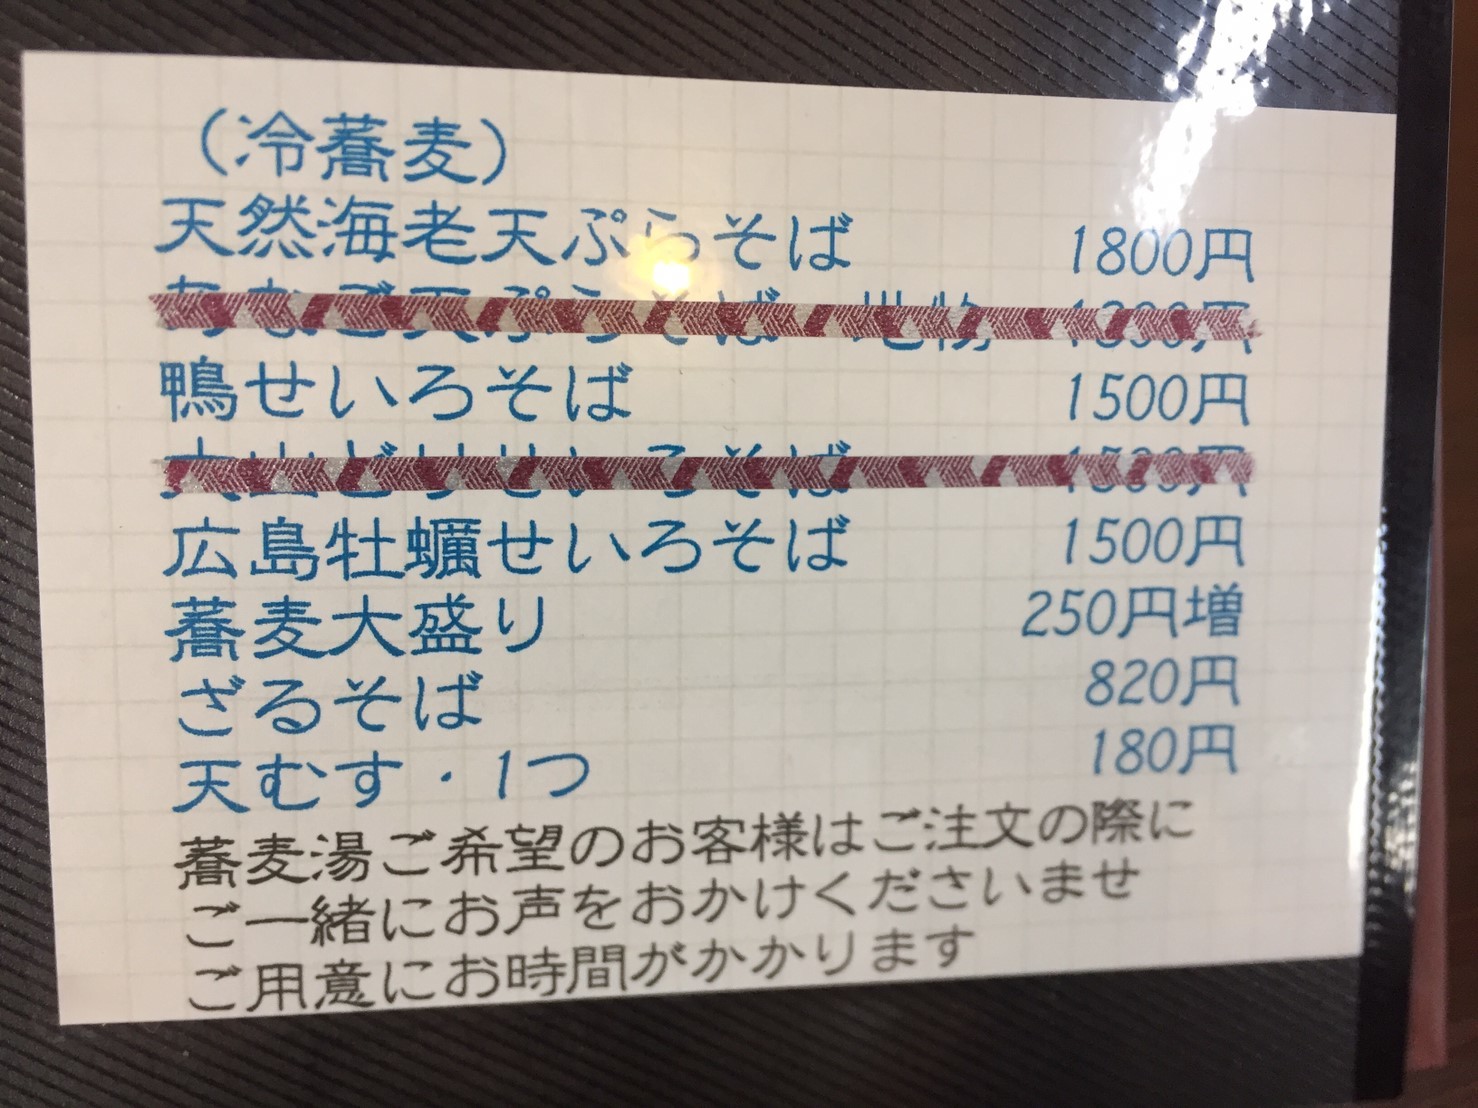 （冷蕎麦）
天然海老天ぷらそば 1800円
鴨せいろそば 1500円
広島牡蠣せいろそば 1500円
蕎麦大盛り 250円増
ざるそば 820円
天むす・1つ 180円
蕎麦湯ご希望のお客様はご注文の際に
ご一緒にお声をおかけくださいませ
ご用意にお時間がかかります